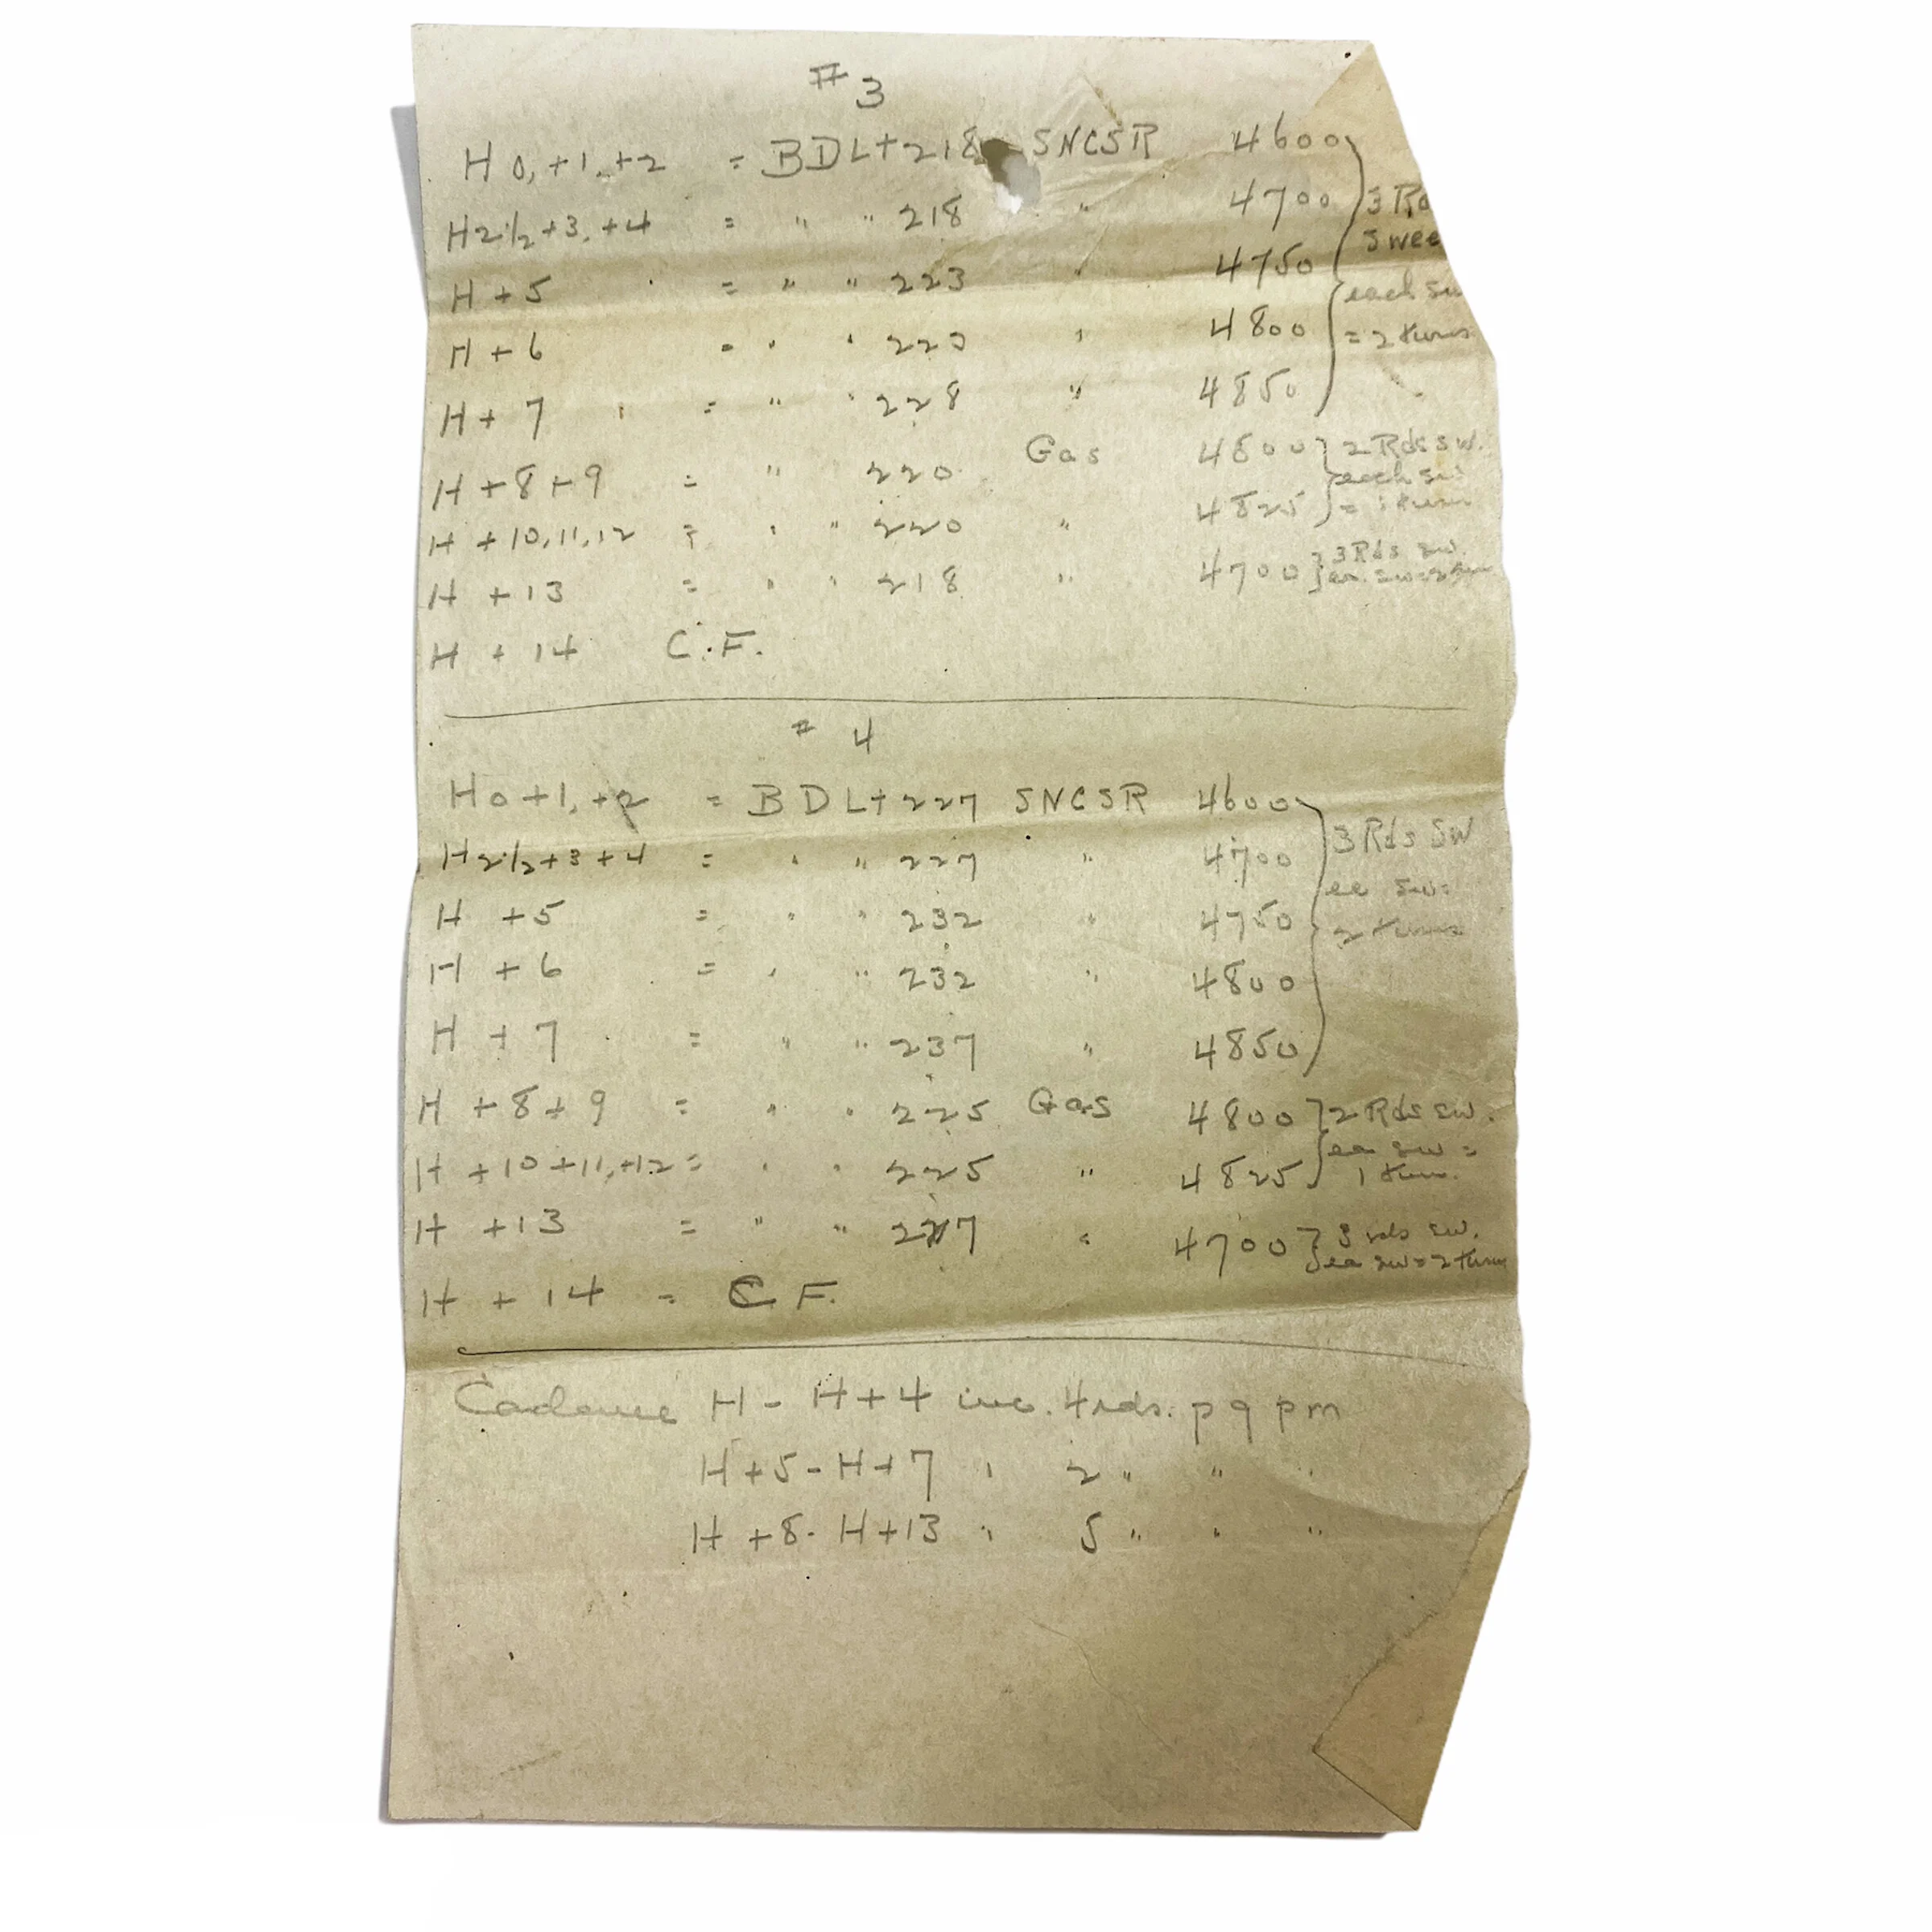 # 3
H 0, +1, +2 = BDL+218 SNCSR 4600 } 3 Rd
H 2 1/2 +3, +4 = " " 218 " 4700 swee
H + 5 = " " 223 " 4750 each sw
H + 6 = " " 223 " 4800 = 2 turns
H + 7 = " " 228 " 4850
H + 8 + 9 = " 220 Gas 4800 } 2 Rds sw. each sw
H + 10, 11, 12 = " " 220 " 4825 = 1 turn
H + 13 = " " 218 " 4700 } 3 Rds sw. ea. sw = 2 turns
H + 14 C.F.
# 4
H 0 +1, +2 = BDL+227 SNCSR 4600 } 3 Rds Sw
H 2 1/2 +3 +4 = " " 227 " 4700 ea sw=
H + 5 = " " 232 " 4750 2 turns
H + 6 = " " 232 " 4800
H + 7 = " " 237 " 4850
H + 8 + 9 = " " 225 Gas 4800 } 2 Rds sw.
H + 10 + 11, +12 = " " 225 " 4825 ea sw = 1 turn.
H + 13 = " " 227 " 4700 } 3 rds sw. ea sw = 2 turns
H + 14 = C F.
Cadence H - H + 4 inc. 4 rds. p g p m
H + 5 - H + 7 " 2 " " "
H + 8 - H + 13 " 5 " " "